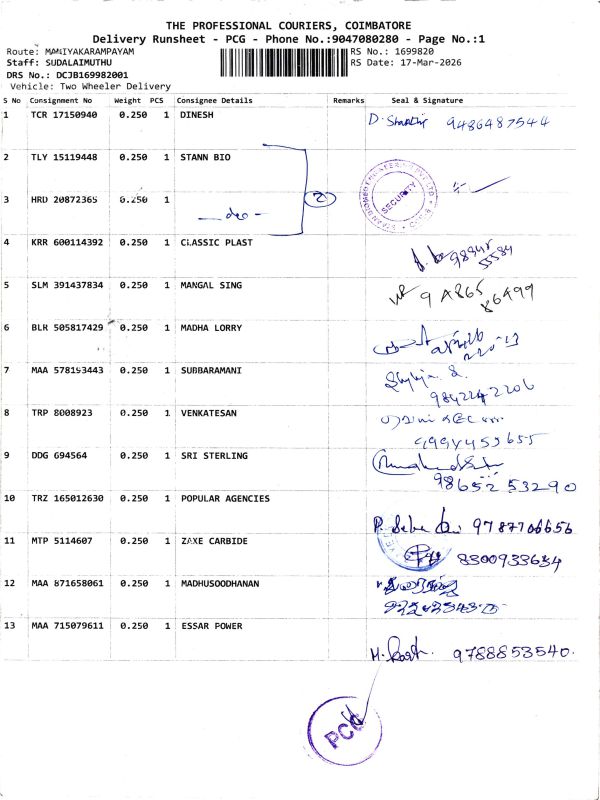 THE PROFESSIONAL COURIERS, COIMBATORE
Delivery Runsheet - PCG - Phone No.:9047080280 - Page No.:1
Route: MANIYAKARAMPAYAM RS No.: 1699820
Staff: SUDALAIMUTHU RS Date: 17-Mar-2026
DRS No.: DCJB169982001
Vehicle: Two Wheeler Delivery
S No Consignment No Weight PCS Consignee Details Remarks Seal & Signature
1 TCR 17150940 0.250 1 DINESH
9486487544
2 TLY 15119448 0.250 1 STANN BIO
SECURITY
3 HRD 20872365 0.250 1 2
—do—
4 KRR 600114392 0.250 1 CLASSIC PLAST
5 SLM 391437834 0.250 1 MANGAL SING
6 BLR 505817429 0.250 1 MADHA LORRY
7 MAA 578153443 0.250 1 SUBBARAMANI
9842242206
8 TRP 8008923 0.250 1 VENKATESAN
9994453655
9 DDG 694564 0.250 1 SRI STERLING
98652 53290
10 TRZ 165012630 0.250 1 POPULAR AGENCIES
9787706656
11 MTP 5114607 0.250 1 ZAXE CARBIDE
8300933634
12 MAA 871658061 0.250 1 MADHUSOODHANAN
13 MAA 715079611 0.250 1 ESSAR POWER
9788853540.
PCG